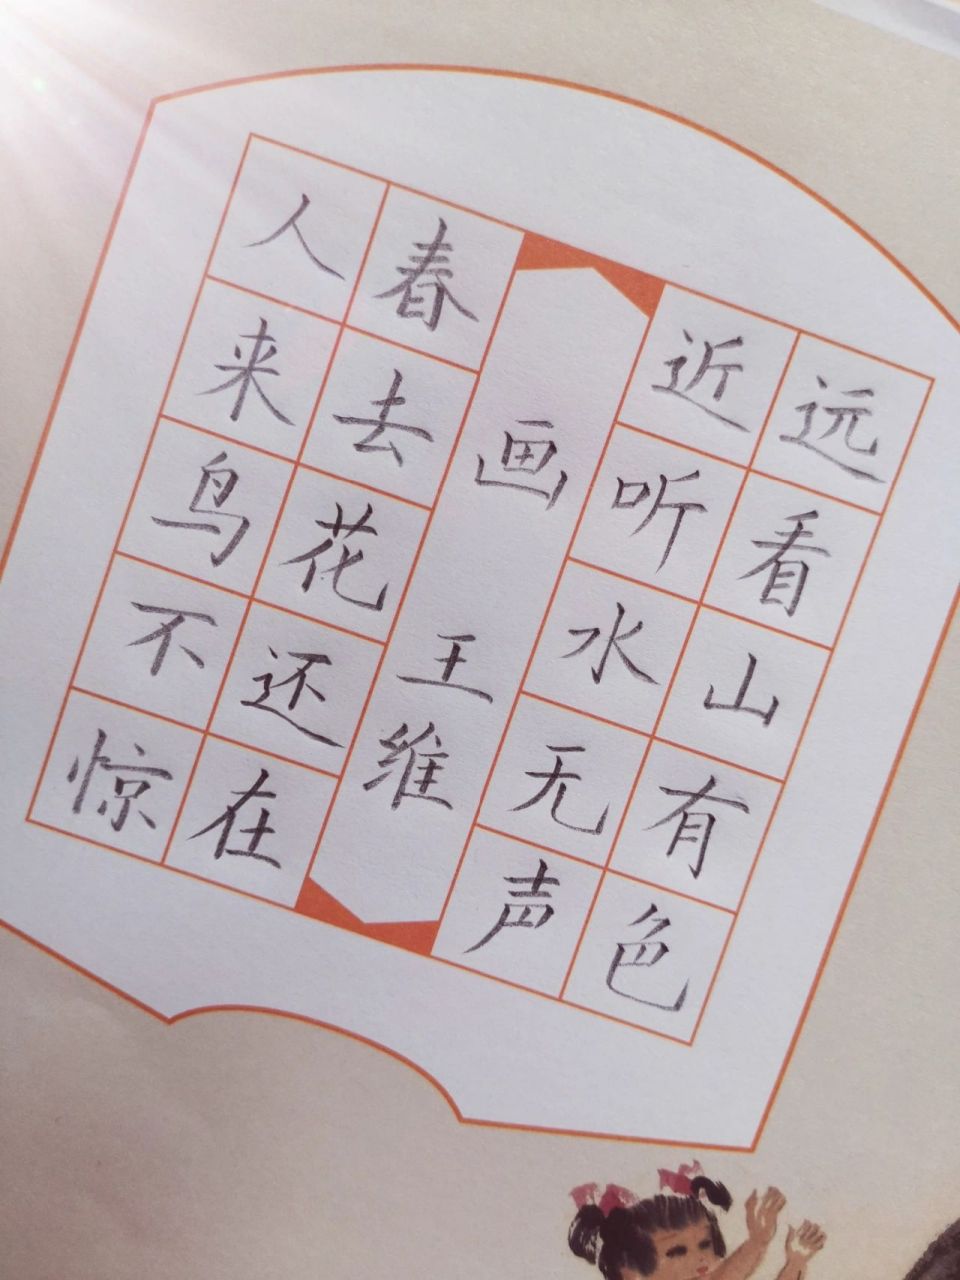 远看山有色
近听水无声
画 王维
春去花还在
人来鸟不惊